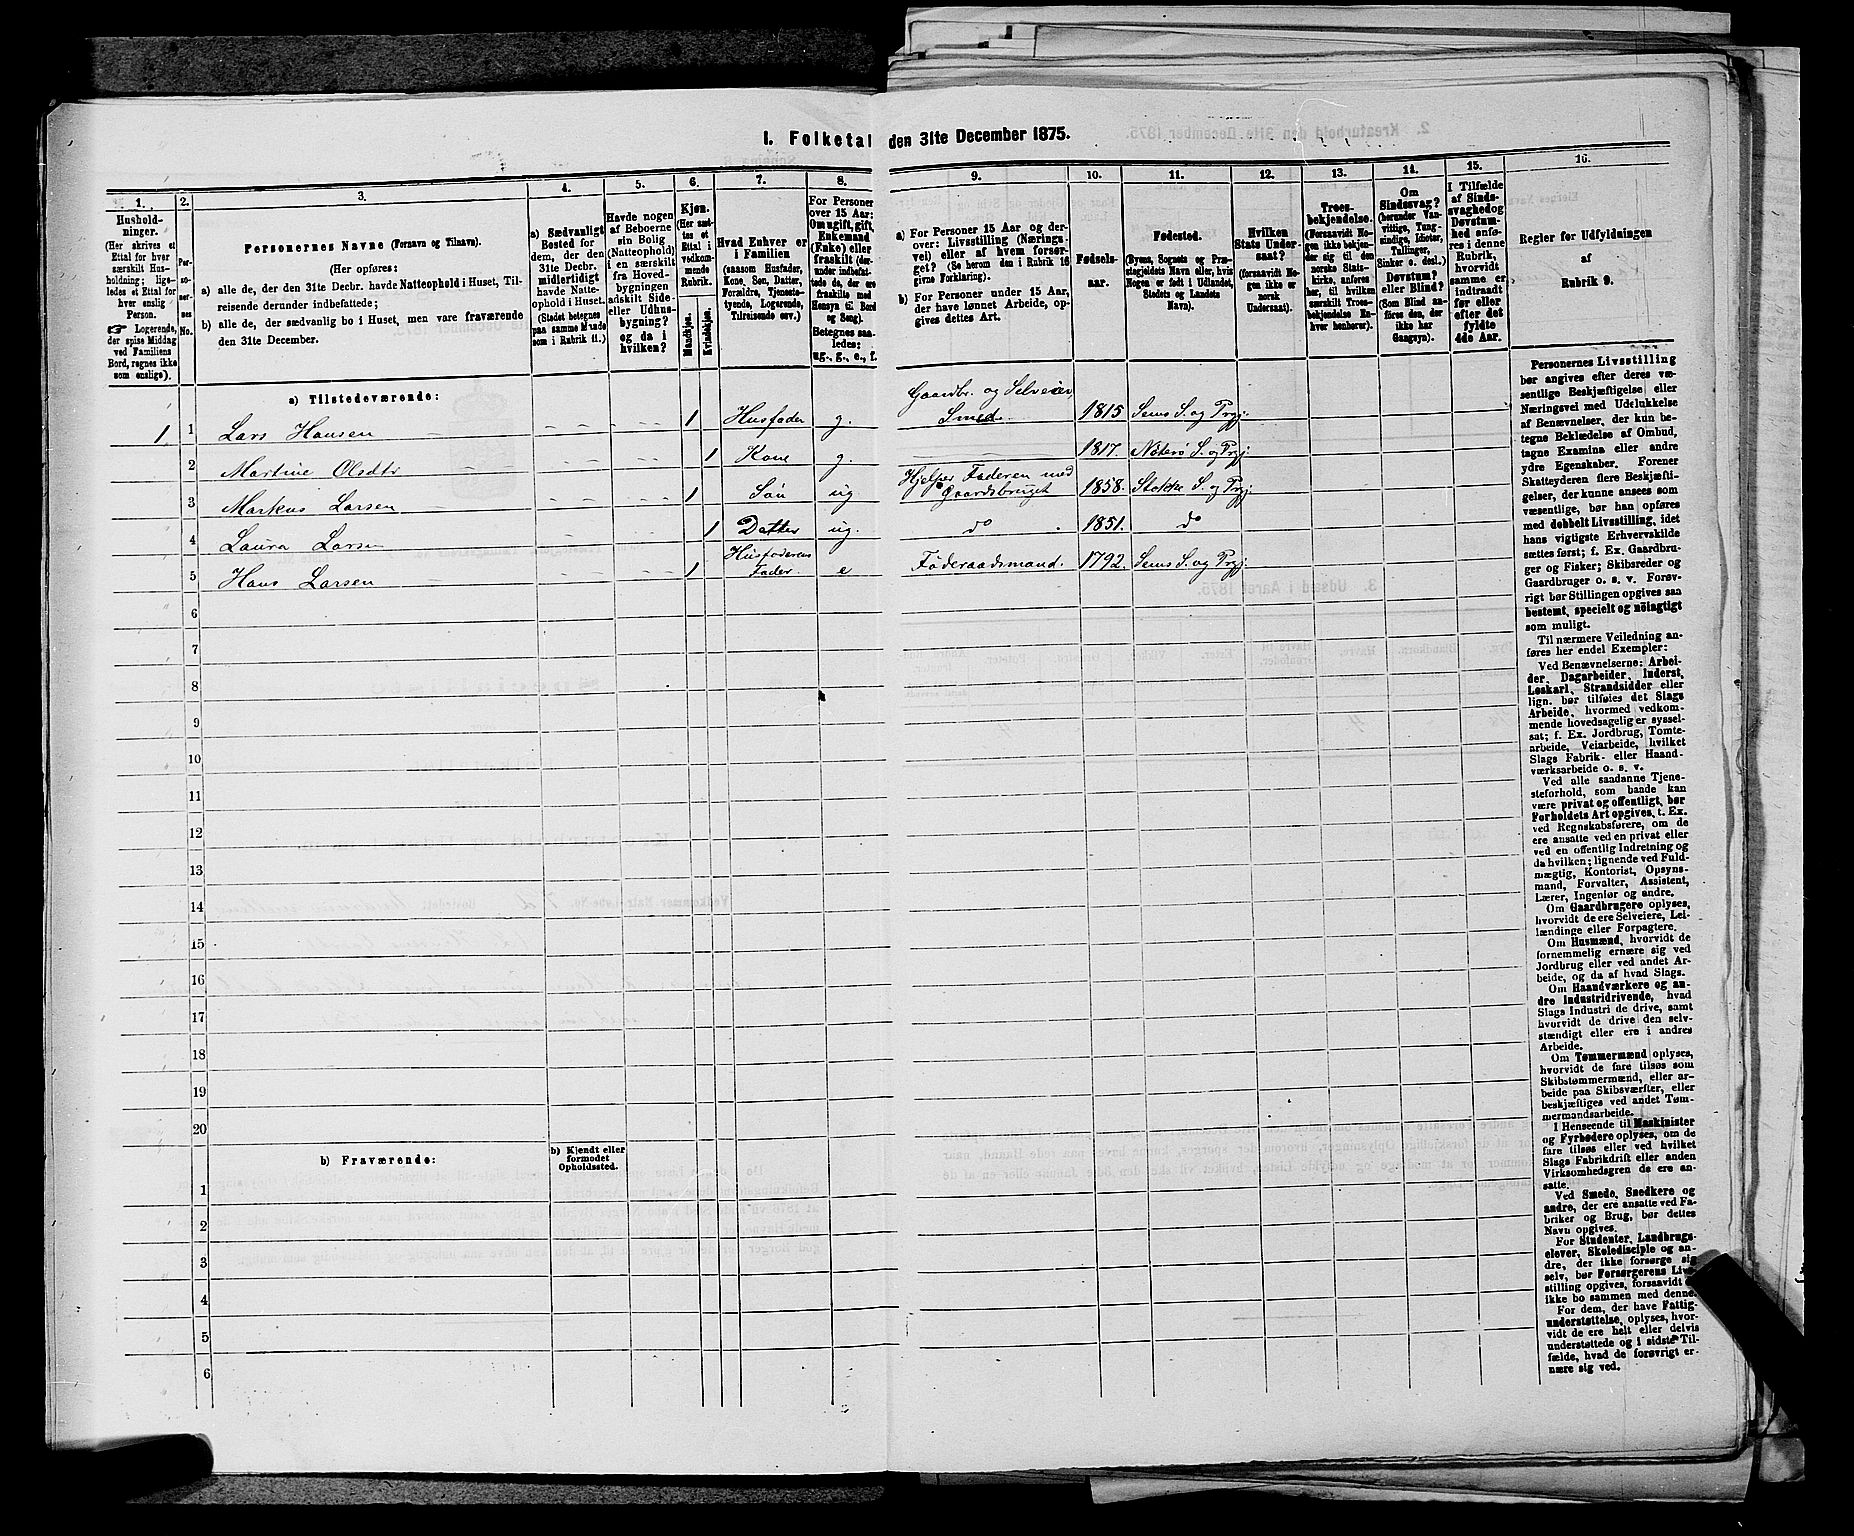 I. Folketal den 31te December 1875.
1.
Hushold-
ninger.
(Her skrives et
Ettal for hver
særskilt Hus-
holdning; lige-
ledes et Ettal for
hver enslig
Person.
☞ Logerende,
der spise Middag
ved Familiens
Bord, regnes ikke
som enslige).
2.
Per-
so-
ner-
nes
No.
3.
Personernes Navne (Fornavn og Tilnavn).
(Her opføres:
a) alle de, der den 31te Decbr. havde Natteophold i Huset, Til-
reisende derunder indbefattede;
b) alle de, der sædvanlig bo i Huset, men vare fraværende
den 31te December.
4.
a) Sædvanligt
Bosted for
dem, der den
31te Decbr.
midlertidigt
havde Natte-
ophold i Huset.
(Stedet betegnes
paa samme Maade
som i Rubrik 11.)
5.
Havde nogen
af Beboerne
sin Bolig
(Natteophold)
i en særskilt
fra Hoved-
bygningen
adskilt Side-
eller Udhus-
bygning?
og da i
hvilken?
6.
Kjøn.
(Her sæt-
tes et
Ettal i
vedkom-
mende
Rubrik.
Mandkjøn.
Kvindekjøn.
7.
Hvad Enhver er
i Familien
(saasom Husfader,
Kone, Søn, Datter,
Forældre, Tjeneste-
tyende, Logerende,
Tilreisende osv.)
8.
For Personer
over 15 Aar:
Om ugift, gift,
Enkemand
(Enke) eller
fraskilt (der-
under indbefat-
tede de, der ere
fraskilte med
Hensyn til Bord
og Seng).
Betegnes saa-
ledes:
ug., g., e., f.
9.
a) For Personer 15 Aar og der-
over: Livsstilling (Nærings-
vei) eller af hvem forsør-
get? (Se herom den i Rubrik 16
givne Forklaring).
b) For Personer under 15 Aar,
der have lønnet Arbeide, op-
gives dettes Art.
10.
Fødsels-
aar.
11.
Fødested.
(Byens, Sognets og Præ-
stegjeldets Navn, eller, hvis
Nogen er født i Udlandet,
Stedets og Landets
Navn).
12.
Hvilken
Stats Under-
saat?
(forsaavidt No-
gen ikke er
norsk
Undersaat).
13.
Troes-
bekjendelse.
(Forsaavidt No-
gen ikke bekjen-
der sig til den
norske Stats-
kirke, anføres
her, til hvilken
særskilt Troes-
bekjendelse En-
hver henhører).
14.
Om
Sindssvag?
(herunder Van-
vittige, Tung-
sindige, Idioter,
Tullinger,
Sinker o. desl.)
Døvstum?
eller Blind?
(Som Blind an-
føres den, der
ikke har
Gangsyn).
15.
I Tilfælde
af Sinds-
svaghed og
Døvstum-
hed anfø-
res i denne
Rubrik,
hvorvidt
samme er
indtraadt
før eller
efter det
fyldte
4de Aar.
16.
Regler for Udfyldningen
af
Rubrik 9.
a) Tilstedeværende:
1 1 Lars Hansen 1 Husfader g. Gaardbr. og Selveier, Smed. 1815 Sems S. og Prgj.
2 Martine Olsdtr 1 Kone g. 1817. Nøterø S. og Prgj.
3 Markus Larsen 1 Søn ug Hjelper Faderen med Gaardsbruget 1858. Stokke S. og Prgj.
4 Laura Larsen 1 Datter ug. do 1851. do
5 Hans Larsen 1 Husfaderens Fader. e Føderaadsmand. 1792. Sems S. og Prgj.
6
7
8
9
10
11
12
13
14
15
16
17
18
19
20
b) Fraværende:
b) Kjendt eller
formodet
Opholdssted.
1
2
3
4
5
6
Personernes Livsstilling
bør angives efter deres væ-
sentlige Beskjæftigelse eller
Næringsvei med Udelukkelse
af Benævnelser, der kun be-
tegne Beklædelse af Ombud,
tagne Examina eller andre
ydre Egenskaber. Forener
Skatteyderen flere Beskjæfti-
gelser, der kunne ansees som
væsentlige, bør han opføres
med dobbelt Livsstilling, idet
hans vigtigste Erhvervskilde
sættes først; f. Ex. Gaardbru-
ger og Fisker; Skibsreder og
Gaardbruger o. s. v. Forøv-
rigt bør Stillingen opgives saa
bestemt, specielt og nöiagtigt
som muligt.
Til nærmere Veiledning an-
føres her endel Exempler:
Ved Benævnelserne: Arbei-
der, Dagarbeider, Inderst,
Løskarl, Strandsidder eller
lign. bør tilføies det Slags
Arbeide, hvormed vedkom-
mende hovedsagelig er syssel-
sat; f. Ex. Jordbrug, Tomte-
arbeide, Veiarbeide, hvilket
Slags Fabrik- eller Haand-
værksarbeide o. s. v.
Ved alle saadanne Tjene-
steforhold, som baade kan
være privat og offentligt, bør
Forholdets Art opgives, t. Ex.
ved Regnskabsførere, om de
ere ansatte ved en privat eller
ved en offentlig Indretning og
da hvilken; lignende ved Fuld-
mægtig, Kontorist, Opsyns-
mand, Forvalter, Assistent,
Lærer, Ingeniør og andre.
Om Gaardbrugere oplyses,
hvorvidt de ere Selveiere, Lei-
lændinge eller Forpagtere.
Om Husmænd, hvorvidt de
fornemmelig ernære sig ved
Jordbrug eller ved andet Ar-
beide, og da af hvad Slags.
Om Haandværkere og an-
dre industridrivende, hvad
Slags Industri de drive, samt
hvorvidt de drive den selv-
stændigt eller ere i andres
Arbeide.
Om Tømmermænd oplyses,
hvorvidt de fare tilsøs som
Skibstømmermænd, eller ar-
beide paa Skibsværfter, eller
beskjæftiges ved andet Tøm-
mermandsarbeide.
I Henseende til Maskinister
og Fyrbødere oplyses, om de
fare tilsøs eller ved hvilket
Slags Fabrikdrift eller anden
Virksomhedsgren de ere an-
satte.
Ved Smede, Snedkere og
andre, der ere ansatte ved Fa-
briker og Brug, bør dettes
Navn opgives.
For Studenter, Landbrugs-
elever, Skoledisciple og an-
dre, der ikke forsørge sig
selv, bør Forsørgerens Livs-
stilling opgives, forsaavidt de
ikke bo sammen med denne.
For dem, der have Fattig-
understøttelse, oplyses, hvor-
vidt de ere helt eller delvis
understøttede og i sidste Til-
fælde, hvad de forøvrigt er-
nære sig ved.